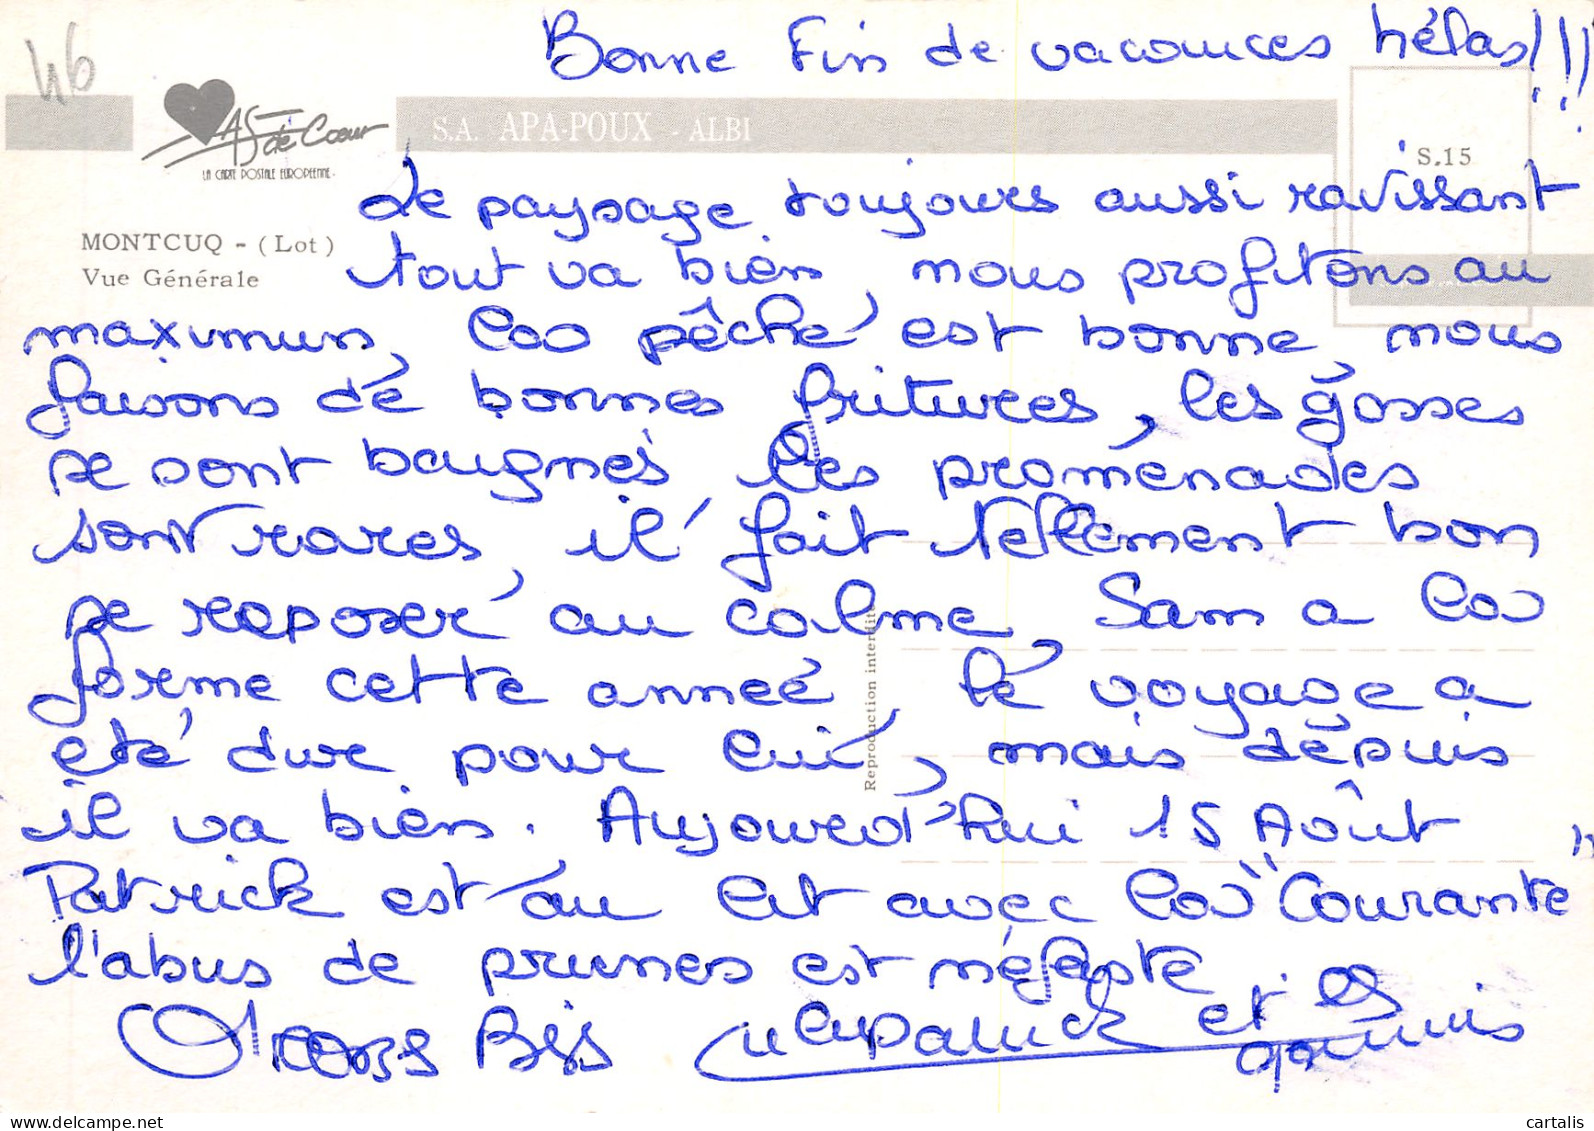 46
Bonne Fin de vacances hélas!!!
AS de Coeur
LA CARTE POSTALE EUROPÉENNE.
S.A. APA-POUX - ALBI
S.15
MONTCUQ - (Lot)
Vue Générale
Le paysage toujours aussi ravissant
tout va bien, nous profitons au
maximun, la pêche est bonne, nous
faisons de bonnes fritures, les gosses
se sont baignés les promenades
sont rares, il fait tellement bon
se reposer au calme, Sam a la
forme cette année, le voyage a
été dur pour lui, mais depuis
il va bien. Aujourd'hui 15 Août
Patrick est au lit avec la "Courante"
l'abus de prunes est néfaste.
Gros Bis
et
Reproduction interdite